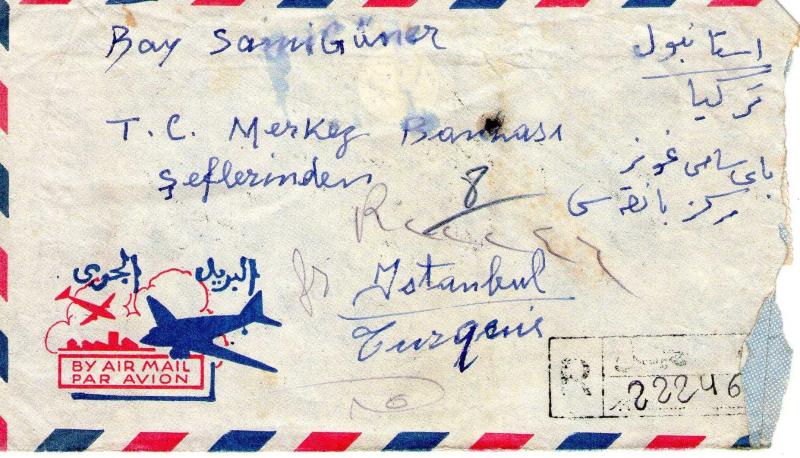 Bay Sami Güner
استانبول
تركيا
T.C. Merkez Bankası
Şeflerinden
باى سامى غونر
مركز بانقه سى
8
R
Istanbul
Turquie
البريد الجوى
BY AIR MAIL
PAR AVION
R
22246